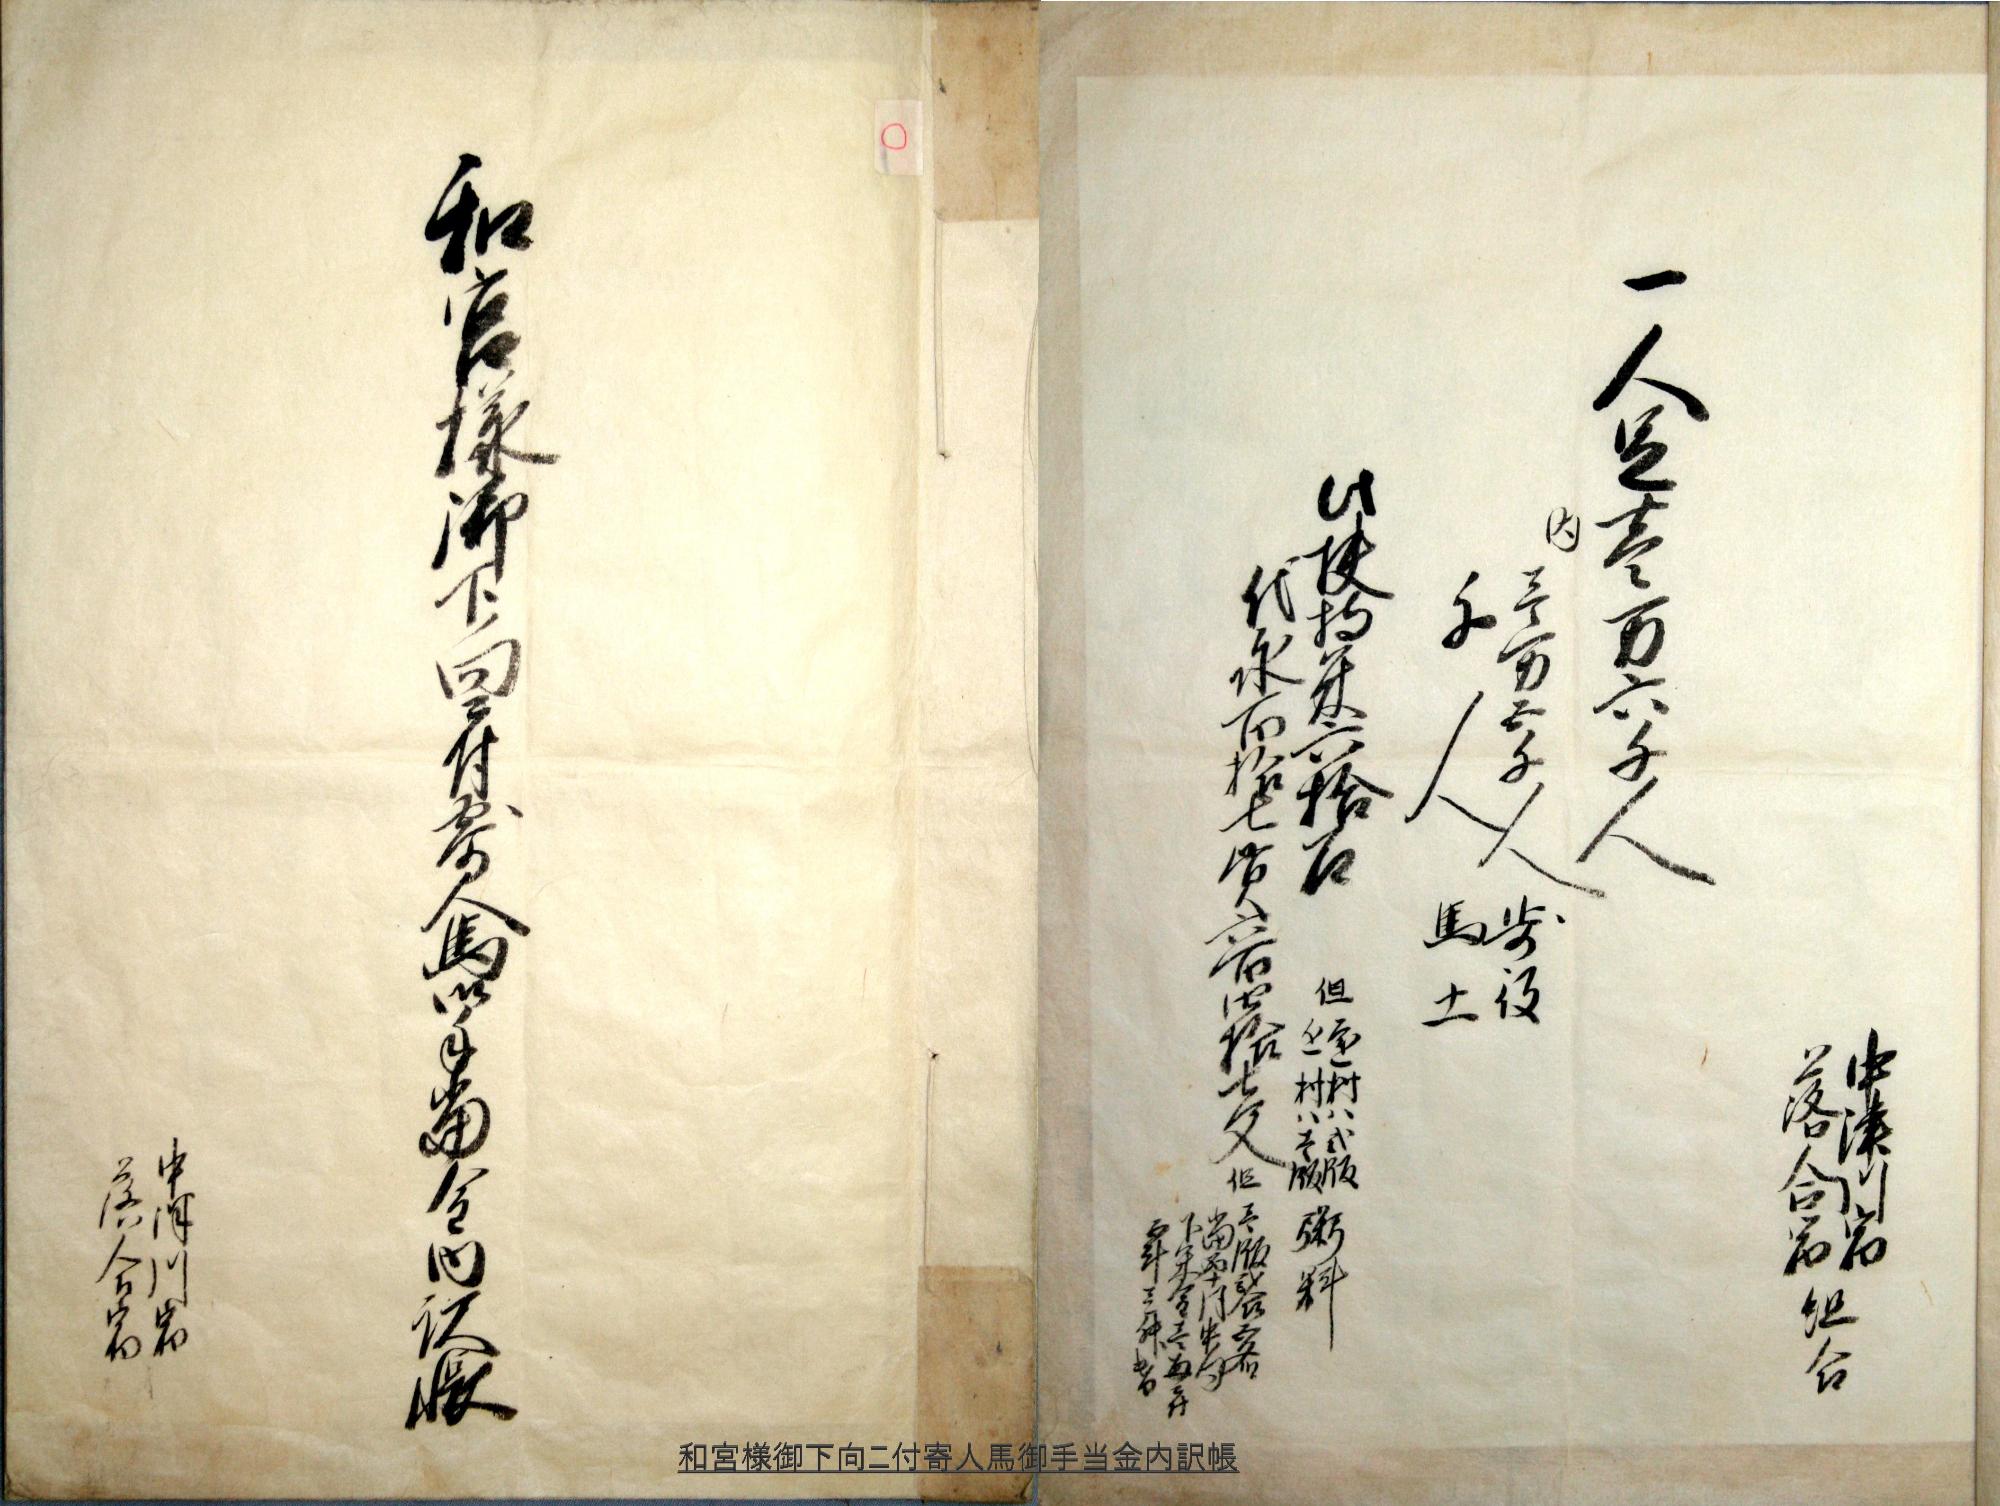 和宮様御下向ニ付寄人馬御手当金内訳帳
中津川宿
落合宿
中津川宿
落合宿
組合
一人足壱万六千人
内
壱万五千人 歩役
千人 馬士
此扶持米六拾石
但 遠村ハ弐飯
近村ハ壱飯
粥料
代永百拾七貫六百四拾七文
但
和宮様御下向ニ付寄人馬御手当金内訳帳